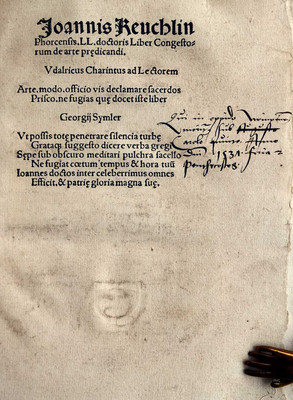 Joannis Reuchlin
Phorcensis. LL. doctoris Liber Congesto-
rum de arte predicandi.
Vdalricus Charintus ad Lectorem
Arte. modo. officio vis declamare sacerdos
Prisco. ne fugias quę docet iste liber
Georgij Symler
Vt possis totę penetrare silencia turbę
Grataq; suggesto dicere verba gregi
Sępe sub obscuro meditari pulchra sacello
Ne fugiat cœtum tempus & hora tuū
Ioannes doctos inter celeberrimus omnes
Efficit, & patrię gloria magna suę.
in
1531